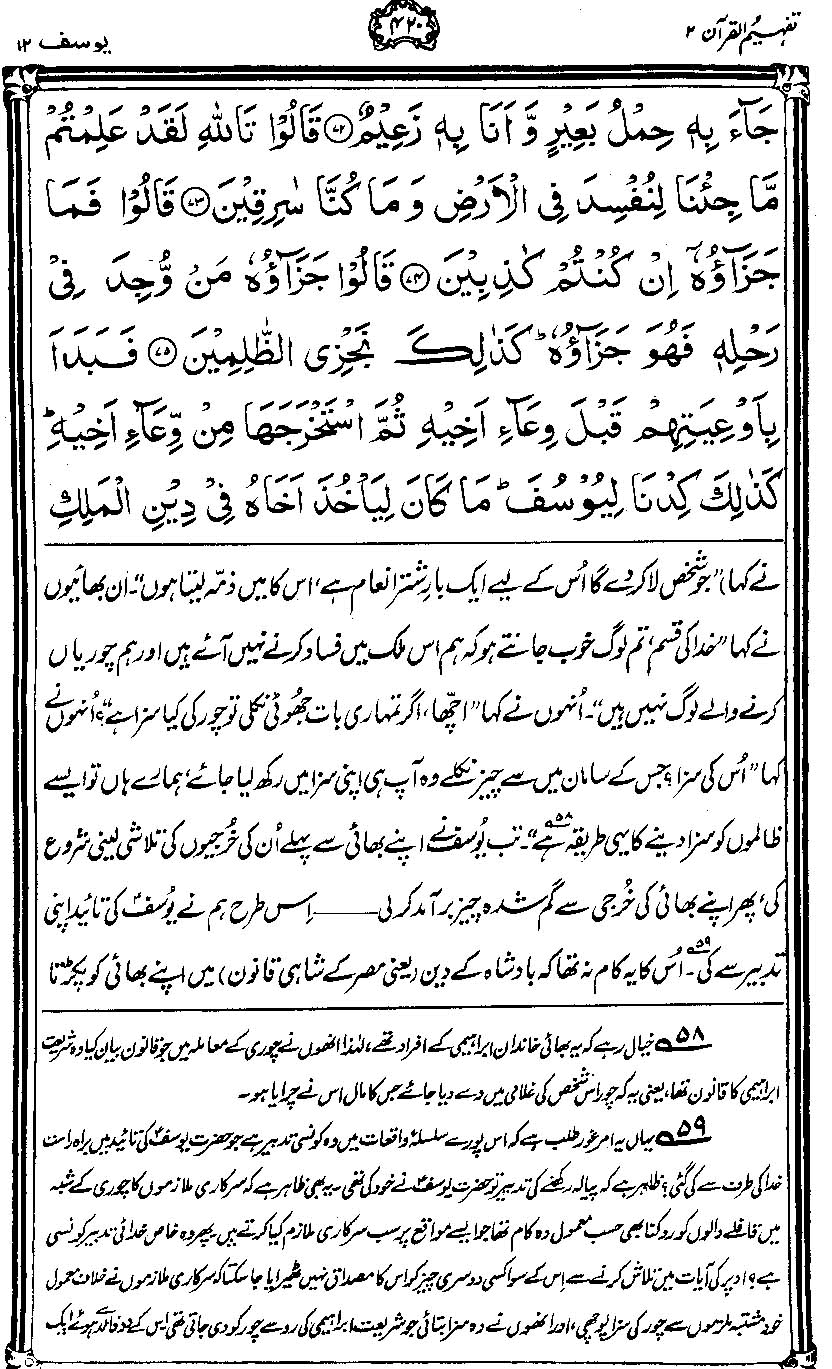 تفہیم القرآن ۲
۴۲۰
یوسف ۱۲
جَآءَ بِهٖ حِمْلُ بَعِيْرٍ وَّ اَنَا بِهٖ زَعِيْمٌ ﴿۷۲﴾ قَالُوْا تَاللّٰهِ لَقَدْ عَلِمْتُمْ
مَّا جِئْنَا لِنُفْسِدَ فِى الْاَرْضِ وَمَا كُنَّا سٰرِقِيْنَ ﴿۷۳﴾ قَالُوْا فَمَا
جَزَآؤُهٗۤ اِنْ كُنْتُمْ كٰذِبِيْنَ ﴿۷۴﴾ قَالُوْا جَزَآؤُهٗ مَنْ وُّجِدَ فِىْ
رَحْلِهٖ فَهُوَ جَزَآؤُهٗ ؕ كَذٰلِكَ نَجْزِى الظّٰلِمِيْنَ ﴿۷۵﴾ فَبَدَاَ
بِاَوْعِيَتِهِمْ قَبْلَ وِعَآءِ اَخِيْهِ ثُمَّ اسْتَخْرَجَهَا مِنْ وِّعَآءِ اَخِيْهِ ؕ
كَذٰلِكَ كِدْنَا لِيُوْسُفَ ؕ مَا كَانَ لِيَاْخُذَ اَخَاهُ فِىْ دِيْنِ الْمَلِكِ
نے کہا) ”جو شخص لا کر دے گا اُس کے لیے ایک بارِ شتر انعام ہے، اس کا میں ذمّہ لیتا ہوں“۔ ان بھائیوں
نے کہا ”خدا کی قسم، تم لوگ خوب جانتے ہو کہ ہم اس ملک میں فساد کرنے نہیں آئے ہیں اور ہم چوریاں
کرنے والے لوگ نہیں ہیں“۔ اُنہوں نے کہا ”اچھا، اگر تمہاری بات جھوٹی نکلی تو چور کی کیا سزا ہے“؟ اُنہوں نے
کہا ”اُس کی سزا؟ جس کے سامان میں سے چیز نکلے وہ آپ ہی اپنی سزا میں رکھ لیا جائے، ہمارے ہاں تو ایسے
ظالموں کو سزا دینے کا یہی طریقہ ہے۵۸“۔ تب یُوسف نے اپنے بھائی سے پہلے اُن کی خُرجیوں کی تلاشی لینی شروع
کی، پھر اپنے بھائی کی خُرجی سے گم شدہ چیز برآمد کر لی ——— اِس طرح ہم نے یُوسف ؑ کی تائید اپنی
تدبیر سے کی۵۹۔ اُس کا یہ کام نہ تھا کہ بادشاہ کے دین (یعنی مصر کے شاہی قانون) میں اپنے بھائی کو پکڑتا
۵۸ خیال رہے کہ یہ بھائی خاندان ابراہیمی کے افراد تھے، لہٰذا انھوں نے چوری کے معاملہ میں جو قانون بیان کیا وہ شریعت
ابراہیمی کا قانون تھا، یعنی یہ کہ چور اس شخص کی غلامی میں دے دیا جائے جس کا مال اس نے چرایا ہو۔
۵۹ یہاں یہ امر غور طلب ہے کہ اس پورے سلسلۂ واقعات میں وہ کونسی تدبیر ہے جو حضرت یوسف ؑ کی تائید میں براہ راست
خدا کی طرف سے کی گئی؟ ظاہر ہے کہ پیالہ رکھنے کی تدبیر تو حضرت یوسف ؑ نے خود کی تھی۔ یہ بھی ظاہر ہے کہ سرکاری ملازموں کا چوری کے شبہ
میں قافلے والوں کو روکنا بھی حسب معمول وہ کام تھا جو ایسے مواقع پر سب سرکاری ملازم کیا کرتے ہیں۔ پھر وہ خاص خدائی تدبیر کونسی
ہے؟ اوپر کی آیات میں تلاش کرنے سے اِس کے سوا کسی دوسری چیز کو اس کا مصداق نہیں ٹھیرایا جا سکتا کہ سرکاری ملازموں نے خلاف معمول
خود مشتبہ ملزموں سے چور کی سزا پوچھی، اور انھوں نے وہ سزا بتائی جو شریعت ابراہیمی کی رو سے چور کو دی جاتی تھی۔ اس کے دو فائدے ہوئے ایک